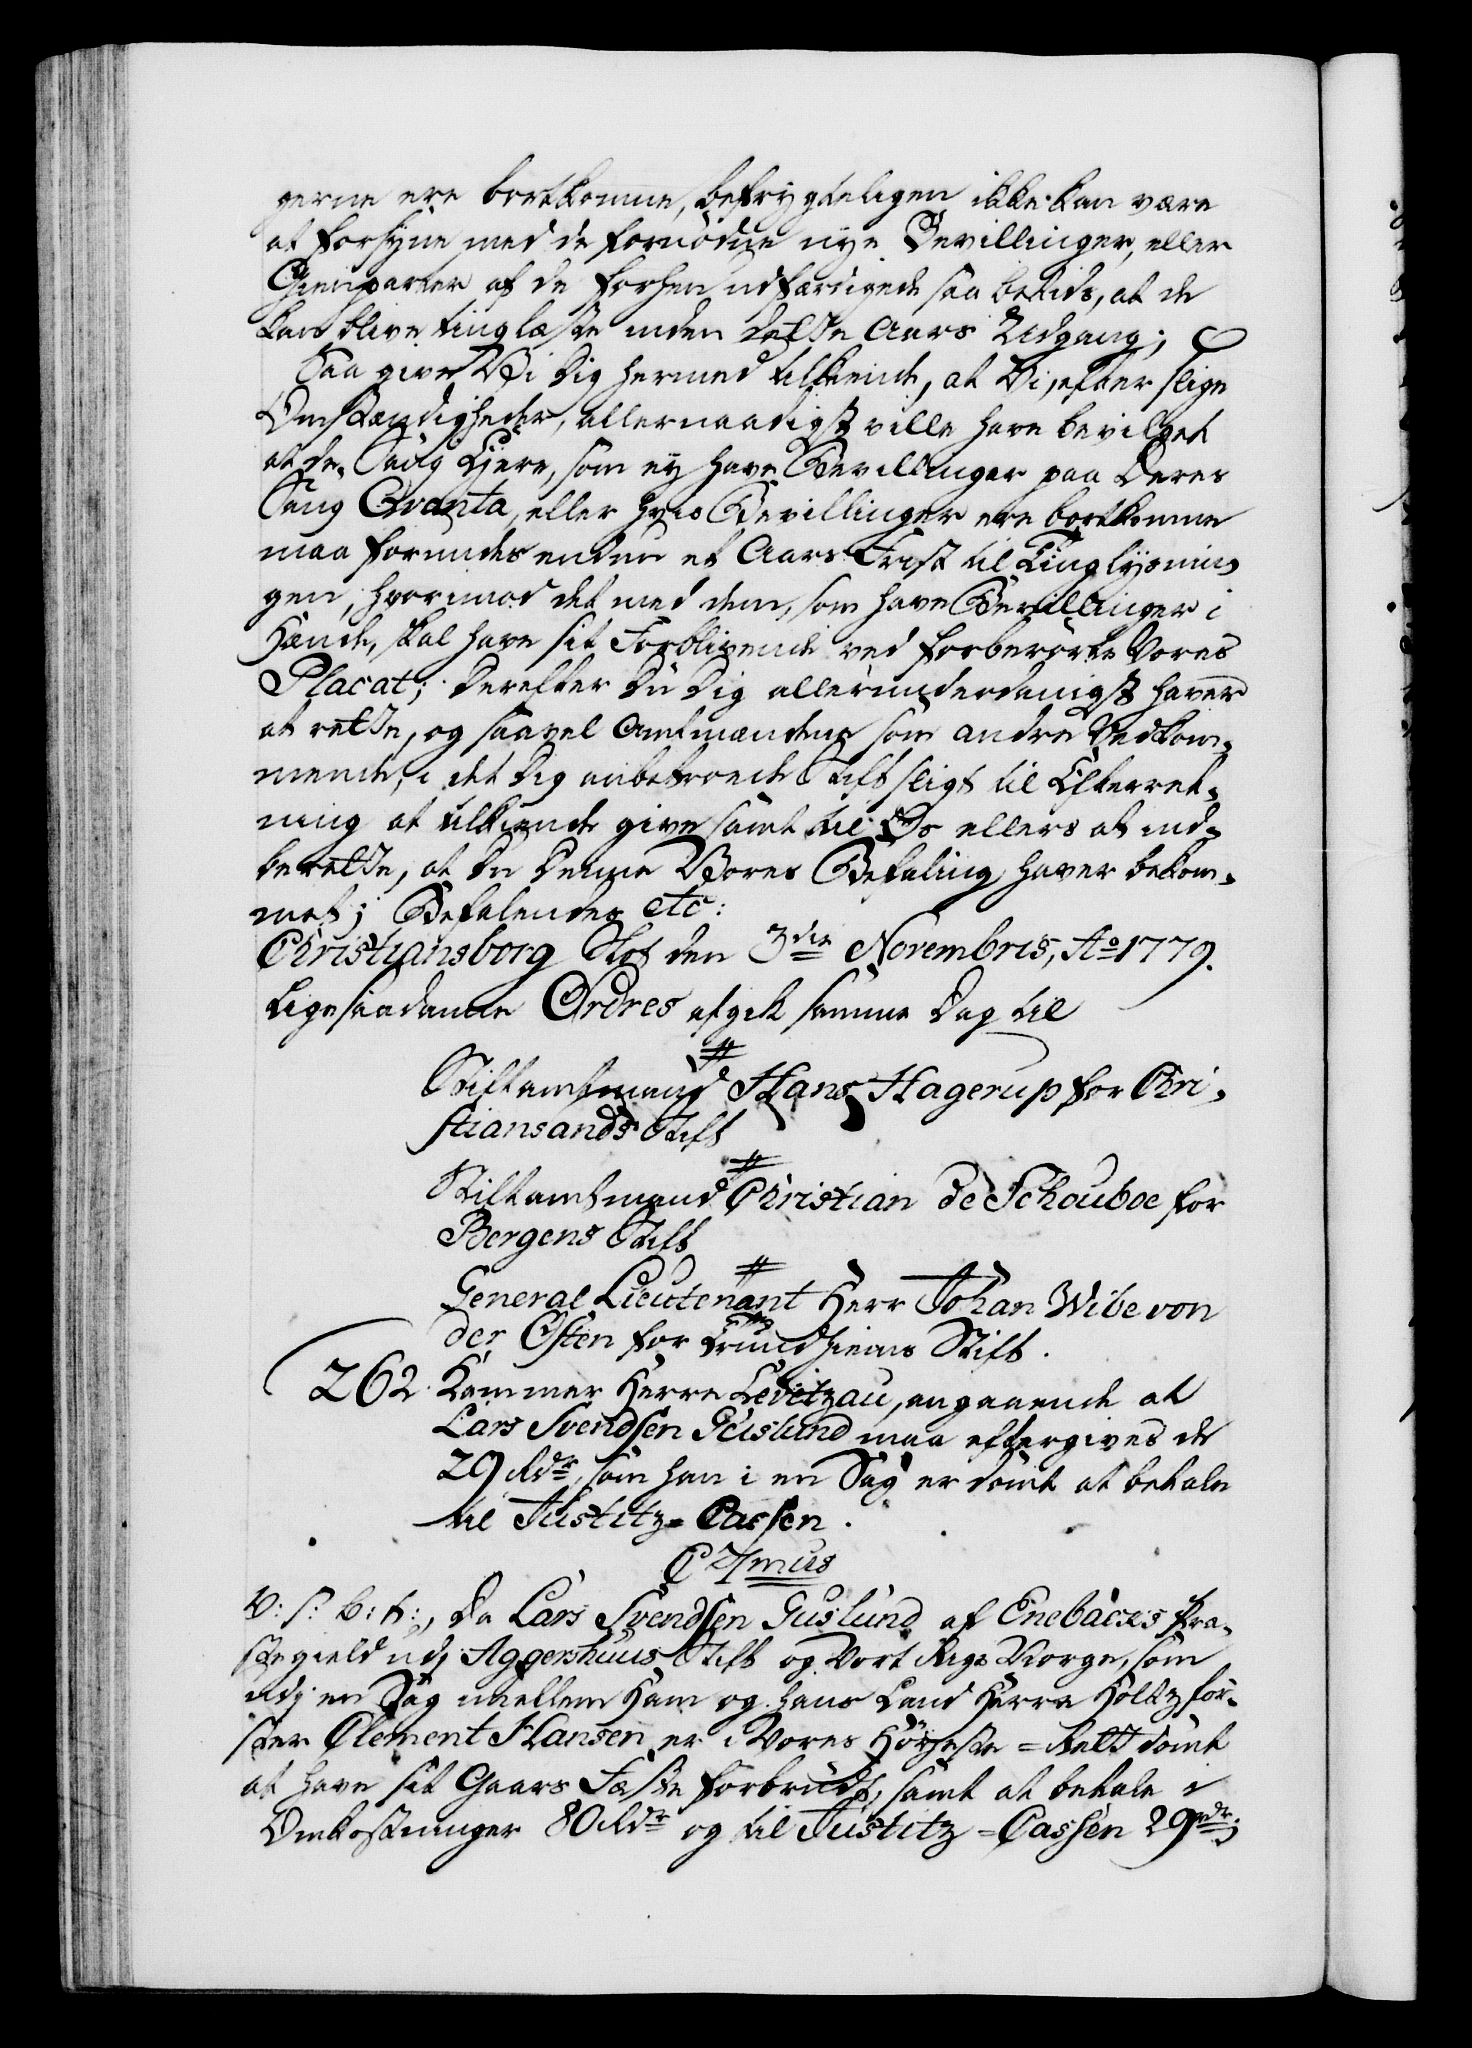 gerne ere bortkomne, befrygteligen ikke kan være
at forsyne med de fornødne nye Bevillinger, eller
Gienparter af de forhen udfærdigede saa betids, at de
kan blive tinglæste inden dette Aars Udgang;
Saa give Vi dig hermed tilkiende, at Vi, efter slige
Omstændigheder, allernaadigst ville have bevilget
at de Saug Ejere, som ey have Bevillinger paa deres
Saug Qvanta, eller hvis Bevillinger ere bortkomne
maa forundes endnu et Aars Frist til Tinglysnin,
gen, hvorimod det med dem, som have Bevillinger i
Hænde, skal have sit Forblivende ved forberørte Vores
Placat; Derefter du dig allerunderdanigst haver
at rette, og saavel Amtmændene som andre Vedkom-
mende, i det dig anbetroede Stift sligt til Efterret-
ning at tilkiende give samt til Os ellers at ind-
berette, at du denne Vores Befaling haver bekom-
met; Befalendes etc:
Christiansborg Slot den 3die Novembris, Ao 1779.
Ligesaadanne Ordres afgik samme Dag til
Stiftamtmand Hans Hagerup for Chri-
stiansands Stift
Stiftamtmand Christian de Schouboe for
Bergens Stift
General Lieutenant Herr Johan Wibe von
der Osten for Trundhiems Stift.
262. Kammer Herre Levetzau, angaaende at
Lars Svendsen Guslund maa eftergives de
29 Rdr, som han i en Sag er dømt at betale
til Justitz-Cassen.
C 7mus
V: s: b: t:, Da Lars Svendsen Guslund af Enebacks Præ-
stegield udj Aggershuus Stift og Vort Rige Norge, som
udj en Sag imellem Ham og hans Land Herre Holtzfør-
ster Clement Hansen er i Vores Høyeste-Rett dømt
at have sit Gaars Fæste forbrudt, samt at betale i
Omkostninger 80 Rdr og til Justitz-Cassen 29 rdr;